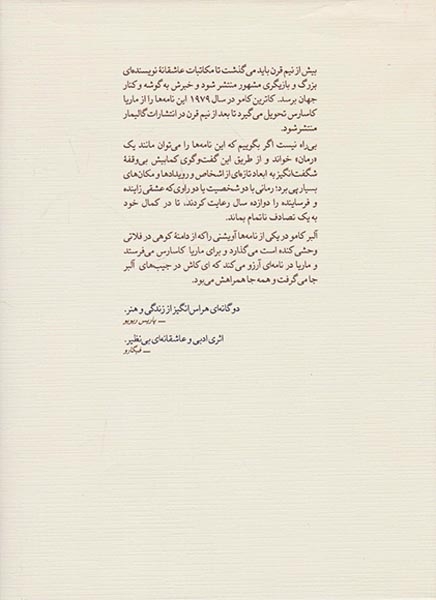 بیش از نیم قرن باید می‌گذشت تا مکاتبات عاشقانهٔ نویسنده‌ای
بزرگ و بازیگری مشهور منتشر شود و خبرش به گوشه و کنار
جهان برسد. کاترین کامو در سال ۱۹۷۹ این نامه‌ها را از ماریا
کاسارس تحویل می‌گیرد تا بعد از نیم قرن در انتشارات گالیمار
منتشر شود.
بی‌راه نیست اگر بگوییم که این نامه‌ها را می‌توان مانند یک
«رمان» خواند و از طریق این گفت‌وگوی کمابیش بی‌وقفهٔ
شگفت‌انگیز به ابعاد تازه‌ای از اشخاص و رویدادها و مکان‌های
بسیار پی برد؛ رمانی با دو شخصیت یا دو راوی که عشقی زاینده
و فرساینده را دوازده سال رعایت کردند، تا در کمال خود
به یک تصادف ناتمام بماند.
آلبر کامو در یکی از نامه‌ها آویشنی را که از دامنهٔ کوهی در فلاتی
وحشی کنده است می‌گذارد و برای ماریا کاسارس می‌فرستد
و ماریا در نامه‌ای آرزو می‌کند که ای کاش در جیب‌های آلبر
جا می‌گرفت و همه جا همراهش می‌بود.
دوگانه‌ای هراس‌انگیز از زندگی و هنر.
— پاریس ریویو
اثری ادبی و عاشقانه‌ای بی‌نظیر.
— فیگارو